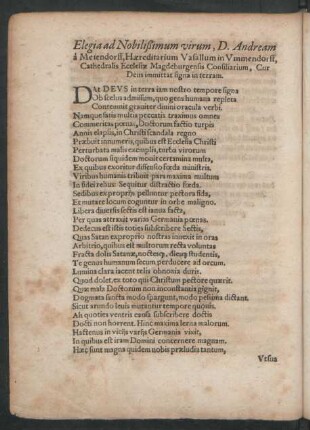 Elegia ad Nobilißimum virum, D. Andream
á Meiendorff, Hæreditarium Vasallum in Vmmendorff,
Cathedralis Ecclesiæ Magdeburgensis Consiliarium, Cur
Deus immittat signa in terram.
DAt DEVS in terra iam nostro tempore signa
Ob scelus admissum, quo gens humana repleta
Contemnit grauiter diuini oracula verbi.
Namque satis multa peccatis traximus omnes
Commeritas pœnas, Doctorum factio turpis
Annis elapsis, in Christi scandala regno
Præbuit innumeris, quibus est Ecclesia Christi
Perturbata malis exemplis, turba virorum
Doctorum siquidem mouit certamina multa,
Ex quibus exoritur dissensio fœda ministris.
Viribus humanis tribuit pars maxima multum
In fidei rebus. Sequitur distractio fœda.
Sedibus ex proprijs pelluntur pectora fida,
Et mutare locum coguntur in orbe maligno.
Libera diuersis sectis est ianua facta,
Per quas attraxit varias Germania pœnas.
Dedecus est istis toties subscribere Sectis,
Quas Satan ex proprio nostras inuexit in oras
Arbitrio, quibus est multorum recta voluntas
Fracta dolis Satanæ, nocteмq́; dieмq́; studentis,
Te genus humanum secum perducere ad orcum.
Lumina clara iacent telis obnoxia dirit.
Quod dolet, ex toto qui Christum pectore quærit.
Quæ mala Doctorum non inconstantia gignit,
Dogmata sancta modo spargunt, modo pessima dictant.
Sicut arundo leuis mutantur tempore quouis.
Ah quoties ventris causa subscribere doctis
Docti non horrent. Hinc maxima lerna malorum.
Hactenus in vitijs varijs Germania vixit,
In quibus est iram Domini concernere magnam.
Hæc sunt magna quidem nobis præludia tantum,